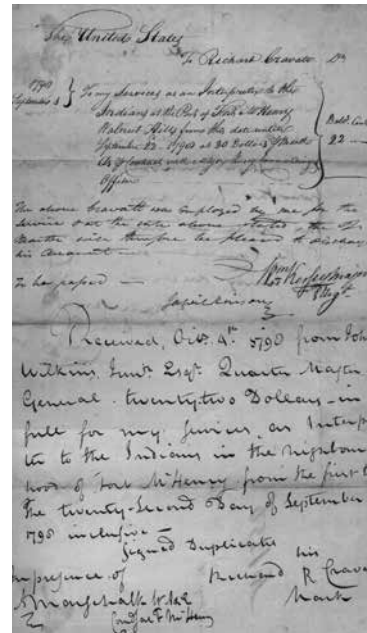 The United States
To Richard Cravatt Dr
1790
September 1 } To my Services as an Interpreter to the
Indians at the Post of Fort McHenry
Walnut Hills from this date until
September 22d 1790 at 30 Dolls Month
as contract with Major
Officer
Dolls Cents
22
The above Cravatt was employed by me for the
Service at the date above stated, the Qr
Master will therefore be pleased to discharge
his account
Major
To be passed
Received, Octr. 4th 1790 from John
Wilkins Junr. Esqr. Quarter Master
General twenty-two Dollars in
full for my Services as Interp
ter to the Indians in the Neighbour
hood of Fort McHenry from the first t
the twenty-Second Day of September
1790 inclusive
Signed Duplicates
In presence of
his
Richard R Crava
Mark
A Marschalk
Fort McHenry